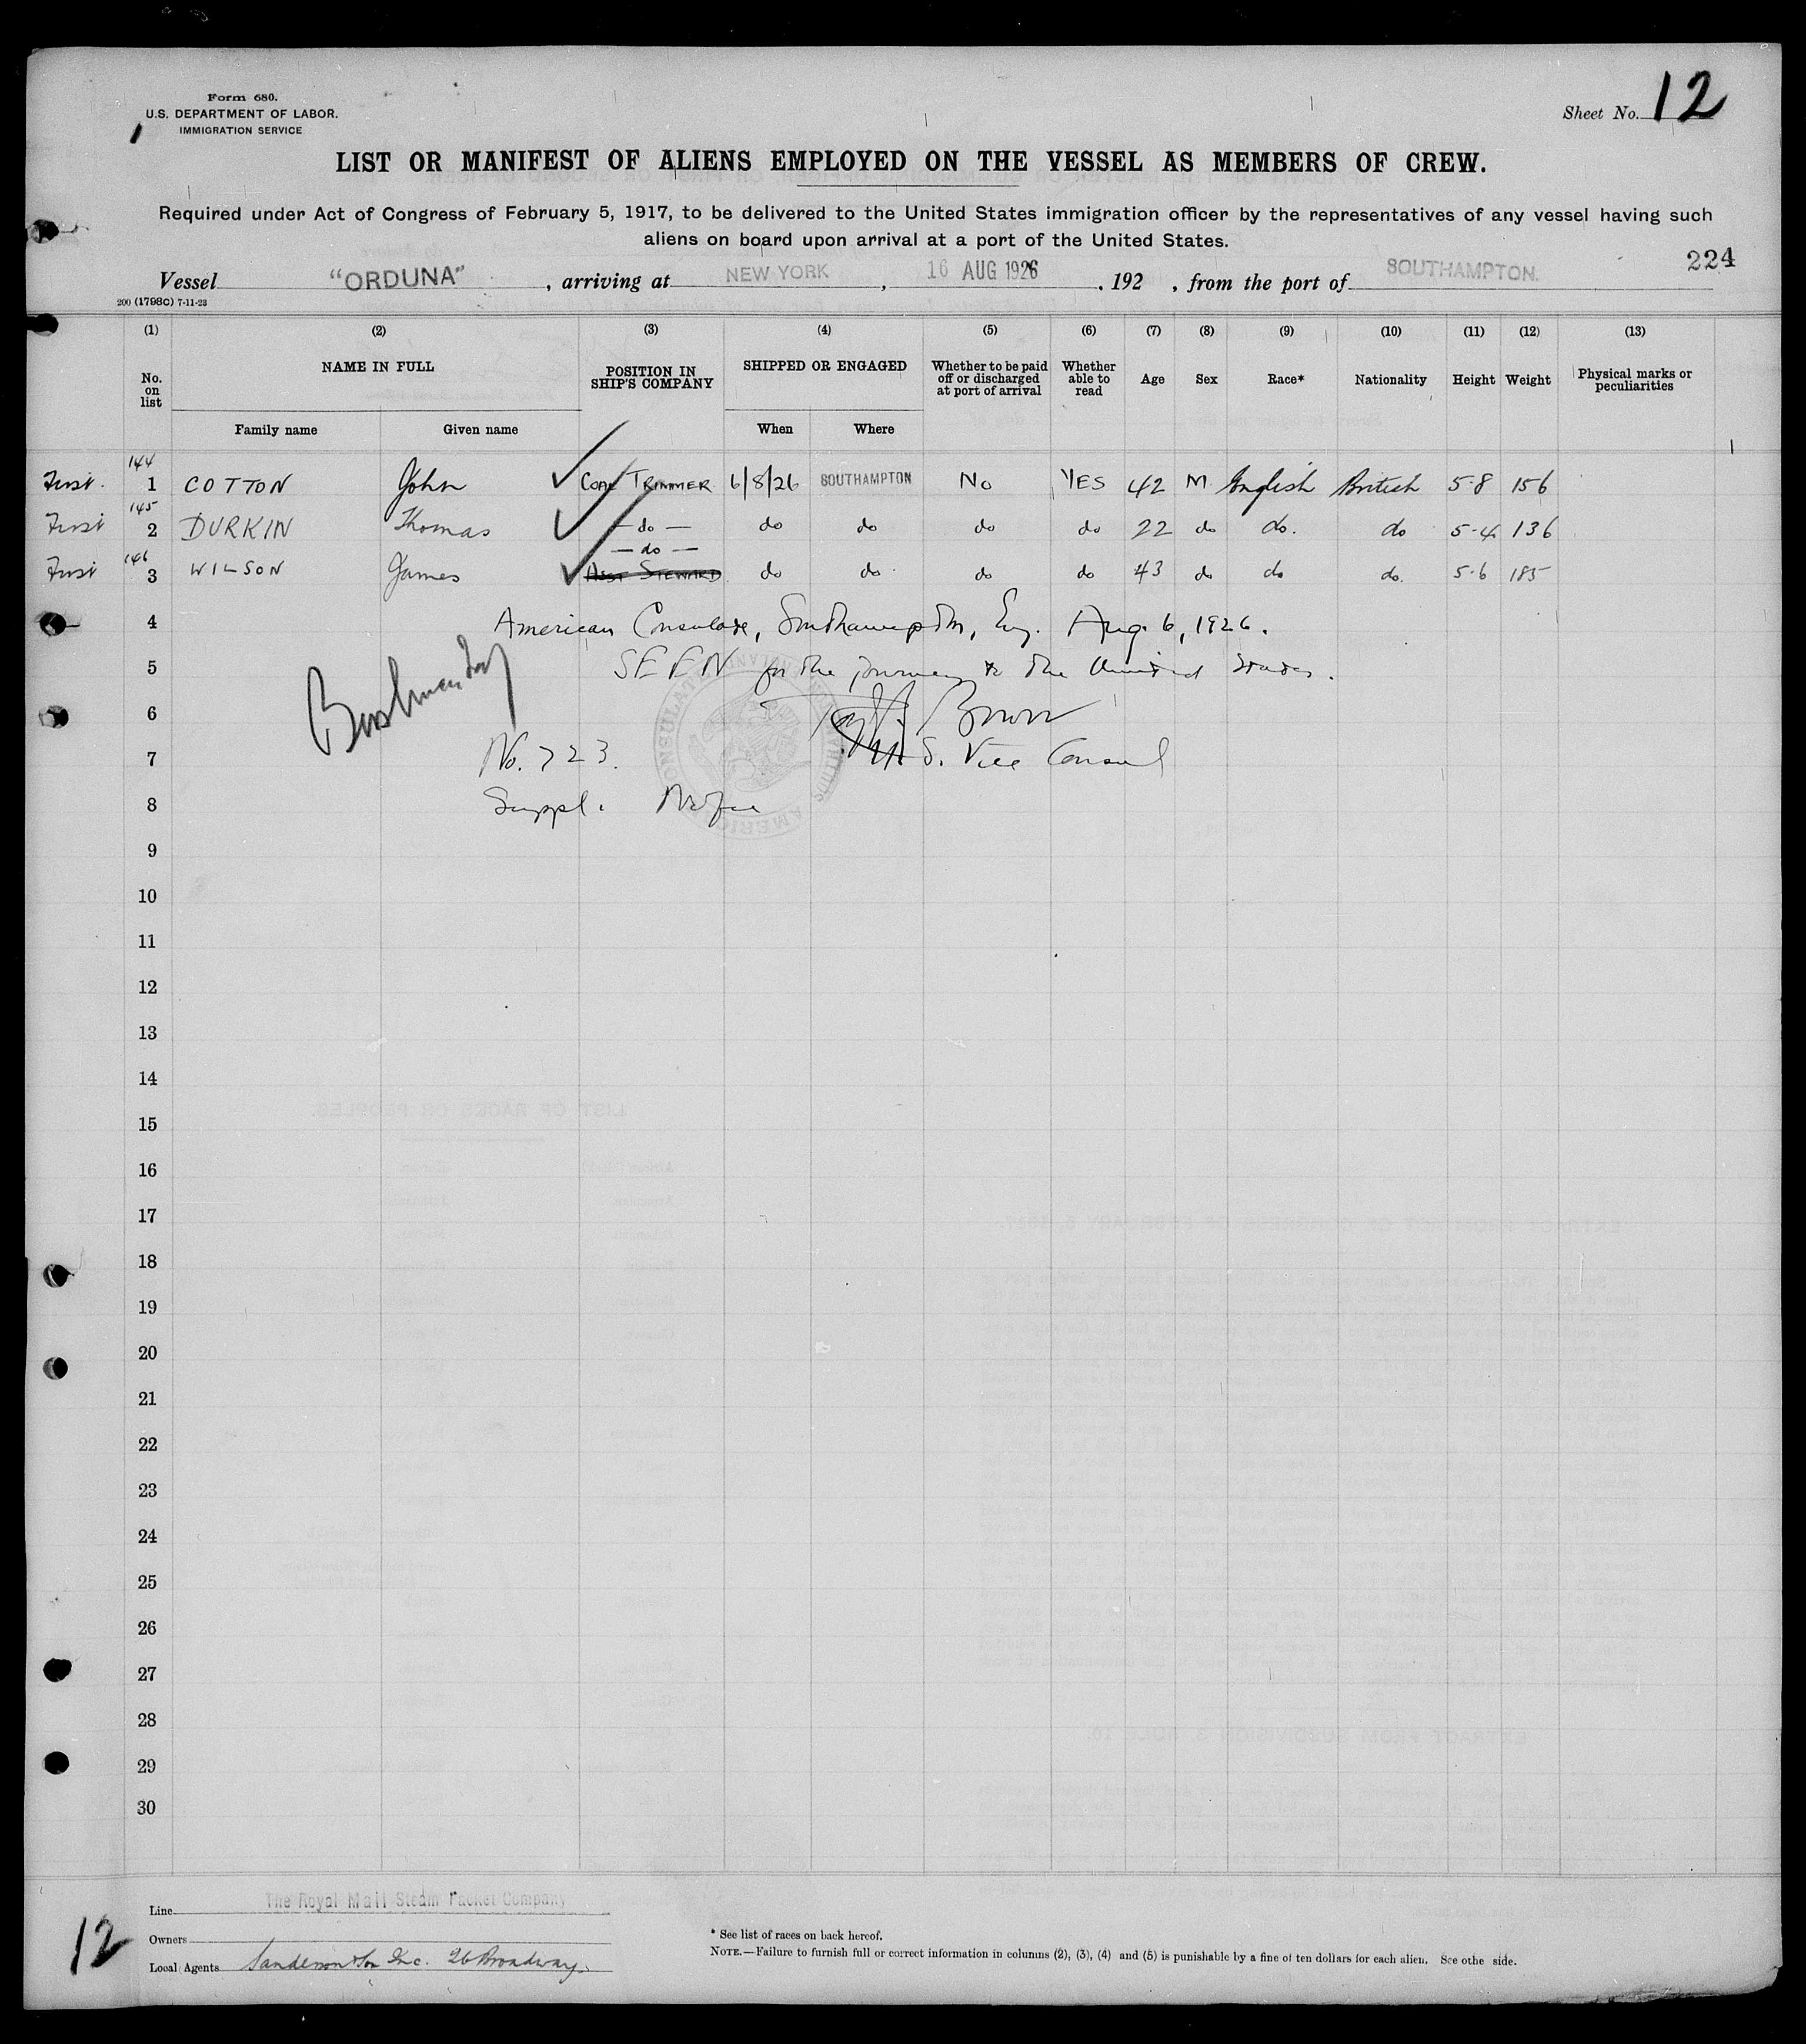 Form 680.
U.S. DEPARTMENT OF LABOR.
IMMIGRATION SERVICE
Sheet No. 12
LIST OR MANIFEST OF ALIENS EMPLOYED ON THE VESSEL AS MEMBERS OF CREW.
Required under Act of Congress of February 5, 1917, to be delivered to the United States immigration officer by the representatives of any vessel having such
aliens on board upon arrival at a port of the United States.
224
Vessel "ORDUNA", arriving at NEW YORK, 16 AUG 1926, 192 , from the port of SOUTHAMPTON.
200 (1798C) 7-11-23
(1) (2) (3) (4) (5) (6) (7) (8) (9) (10) (11) (12) (13)
No. on list NAME IN FULL POSITION IN SHIP'S COMPANY SHIPPED OR ENGAGED Whether to be paid off or discharged at port of arrival Whether able to read Age Sex Race* Nationality Height Weight Physical marks or peculiarities
Family name Given name When Where
First. 144 1 COTTON John COAL TRIMMER 6/8/26 SOUTHAMPTON No YES 42 M English British 5-8 156
First 145 2 DURKIN Thomas — do — do do do do 22 do do. do 5-4 136
— do —
First 146 3 WILSON James ASST STEWARD do do do do 43 do do do. 5-6 185
4 American Consulate, Southampton, Eng. Aug. 6, 1926.
5 SEEN for the journey to the United States.
6 Brown
7 No. 723. U.S. Vice Consul
8 Suppl. No fee
9
10
11
12
13
14
15
16
17
18
19
20
21
22
23
24
25
26
27
28
29
30
Line The Royal Mail Steam Packet Company
12
Owners
Local Agents Sanderson & Son Inc. 26 Broadway.
* See list of races on back hereof.
NOTE.—Failure to furnish full or correct information in columns (2), (3), (4) and (5) is punishable by a fine of ten dollars for each alien. See othe side.